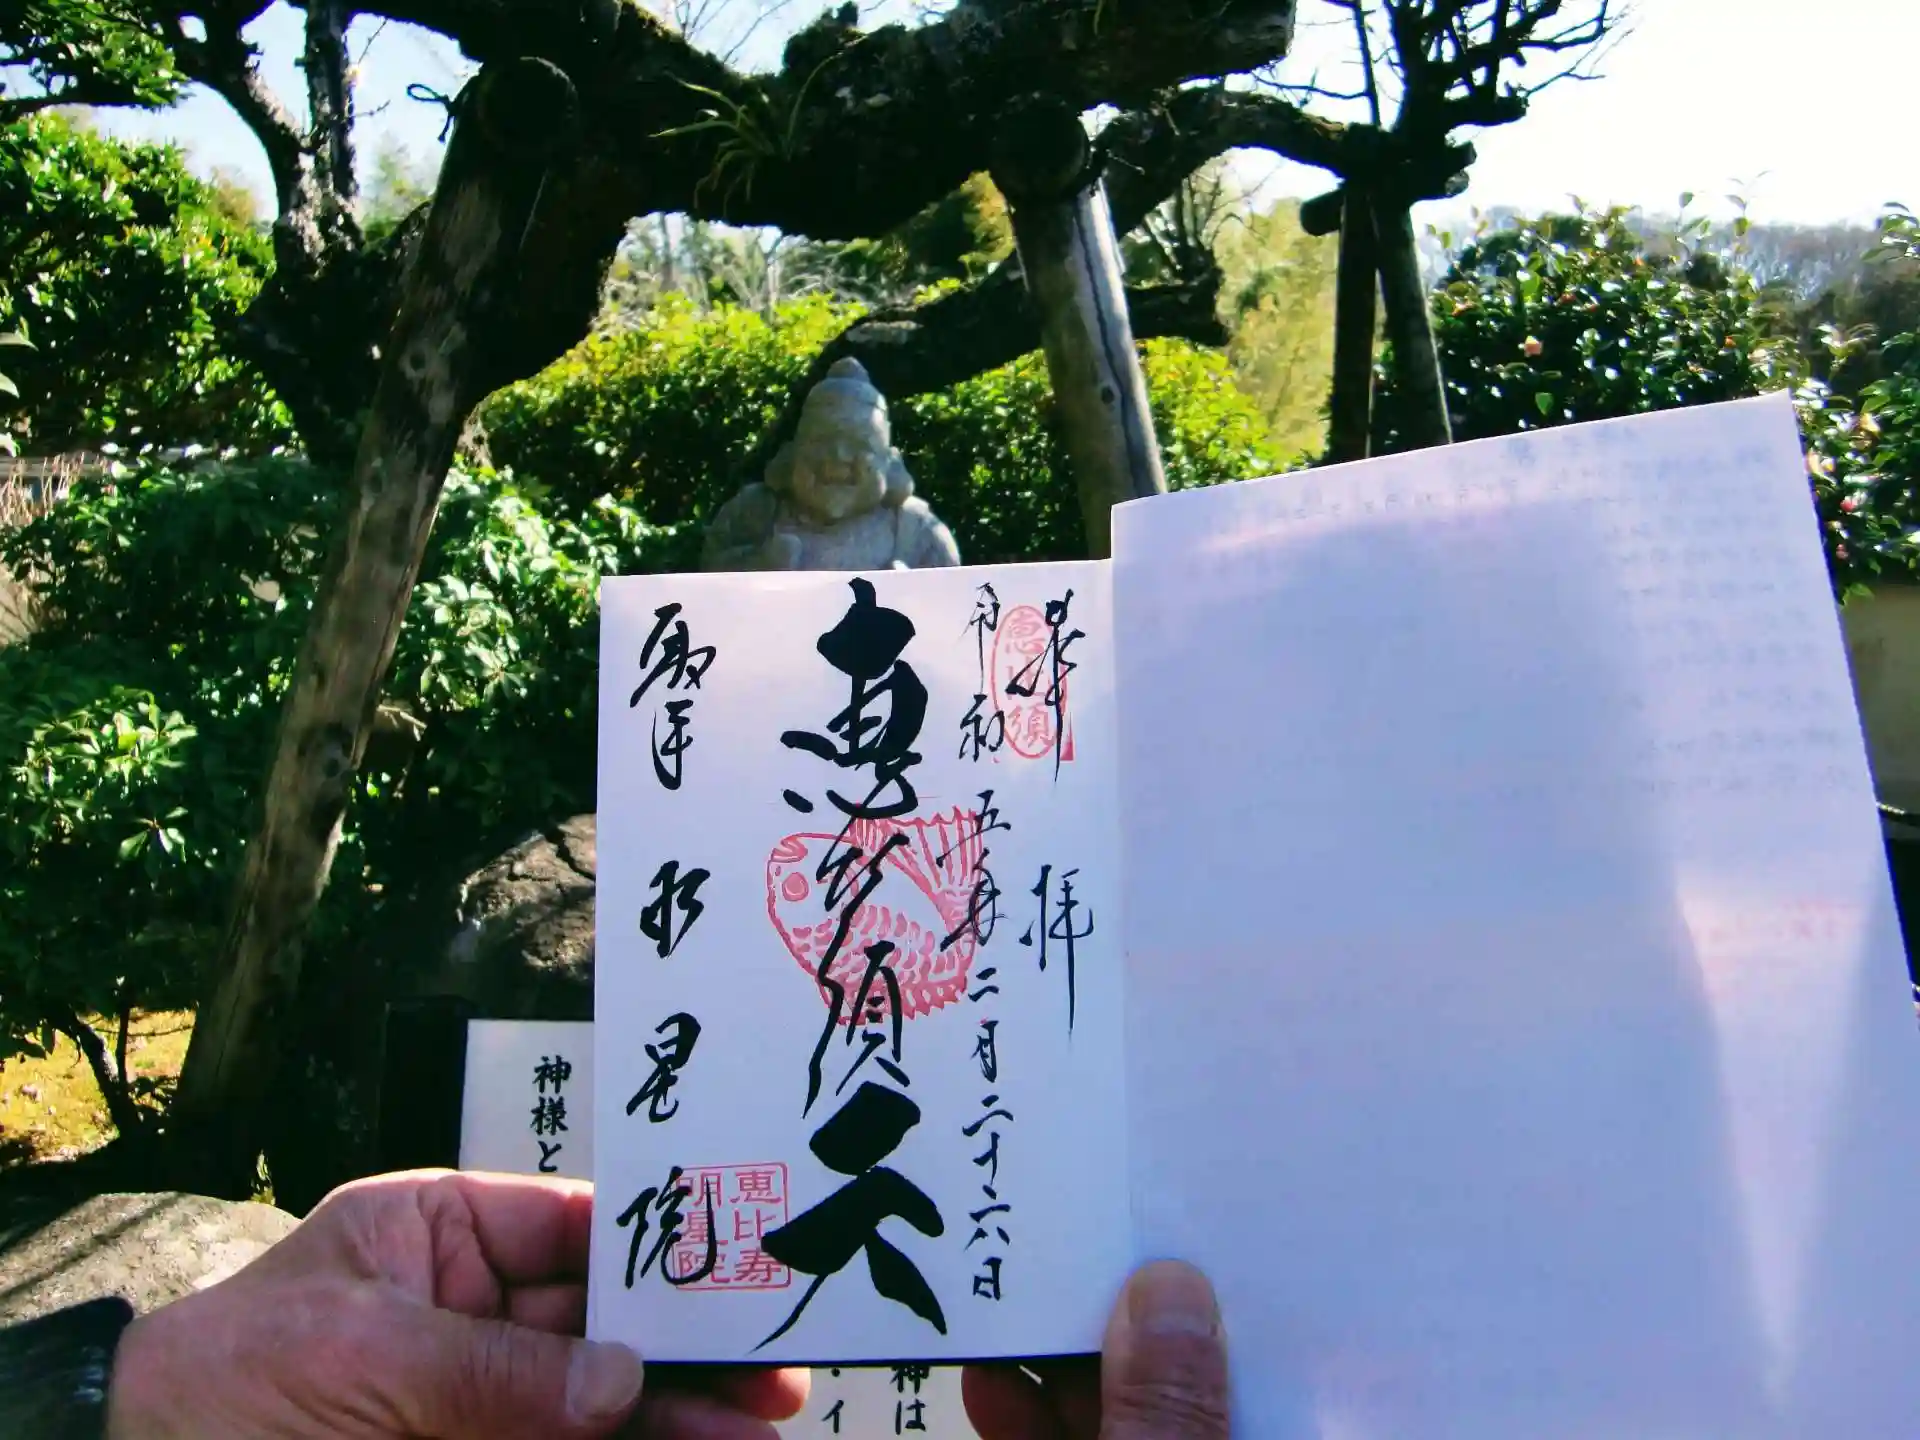 奉拝
恵比須
令和五年二月二十六日
恵比須天
明星院
恵比寿
明星院
神様と
神は
・イ